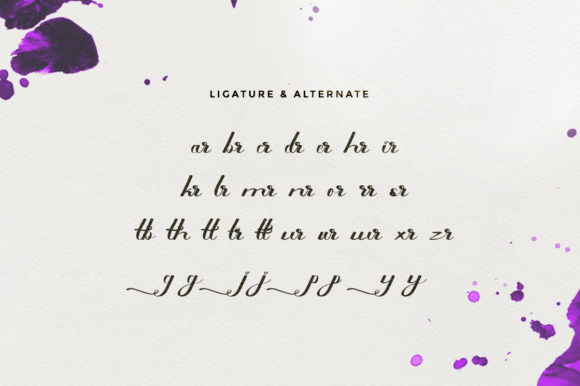 LIGATURE & ALTERNATE
ar br cr dr er hr ir
kr lr mr nr or rr sr
tb th tt tr ur ur wr xr zr
g g j j p p y y